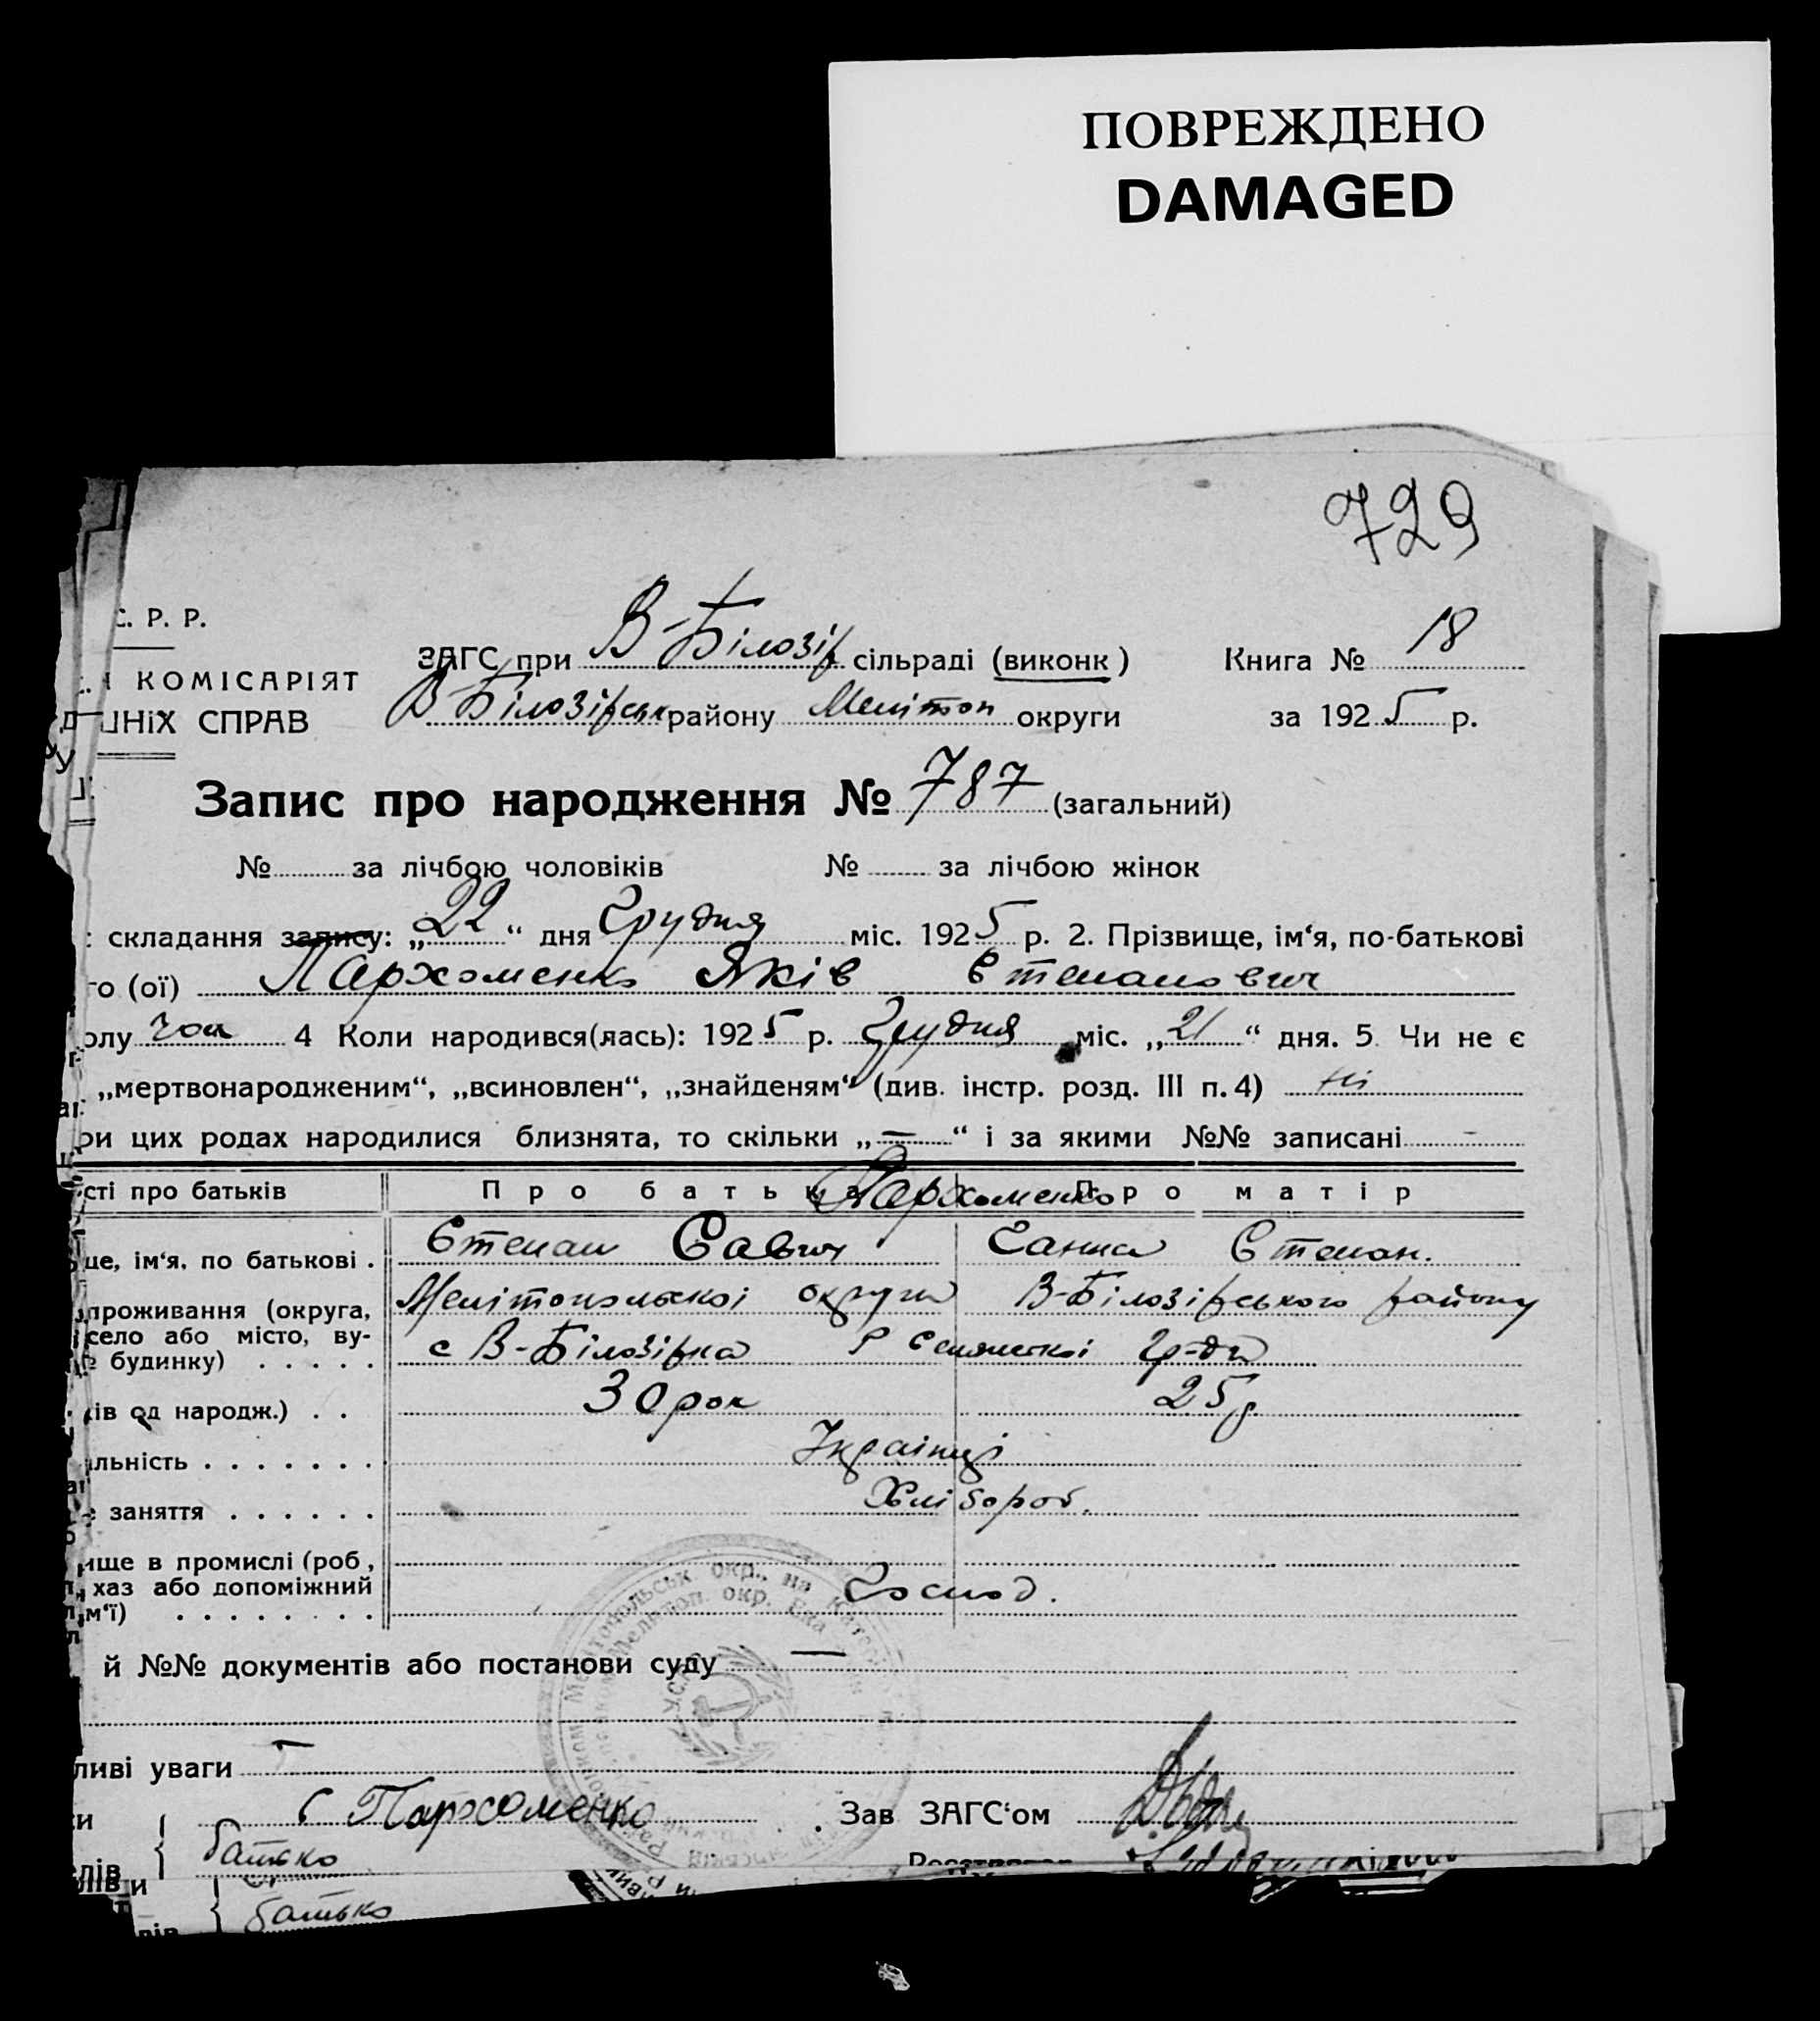 ПОВРЕЖДЕНО
DAMAGED
729
С. Р. Р.
ЗАГС при В-Білозір сільраді (виконк) Книга № 18
КОМІСАРІЯТ
В-Білозірськ району Меліто́п округи за 1925 р.
ШНІХ СПРАВ
Запис про народження № 787 (загальний)
№ за лічбою чоловіків № за лічбою жінок
: складання запису: „22“ дня Грудня міс. 1925 р. 2. Прізвище, ім‘я, по-батькові
го (ої) Пархоменко Яків Степанович
олу чол 4 Коли народився(лась): 1925 р. Грудня міс. „21“ дня. 5. Чи не є
„мертвонародженим“, „всиновлен“, „знайденям“ (див. інстр. розд. III п. 4) ні
ри цих родах народилися близнята, то скільки „—“ і за якими №№ записані -
сті про батьків Про батька Про матір
Пархоменко
ще, ім‘я, по батькові . Степан Савич Ганна Степан.
проживання (округа, Мелітопольскоі округи В-Білозірського району
село або місто, ву-
будинку) . . . . . с В-Білозірка
ків од народж.) . . 30 рок 25 р.
альність . . . . . . . Українці
заняття . . . . . . Хлібороб.
ище в промислі (роб,
хаз або допоміжний Господ.
м‘ї) . . . . . . . .
й №№ документів або постанови суду —
ливі уваги —
С Пархоменко Зав ЗАГС‘ом
батько
батько